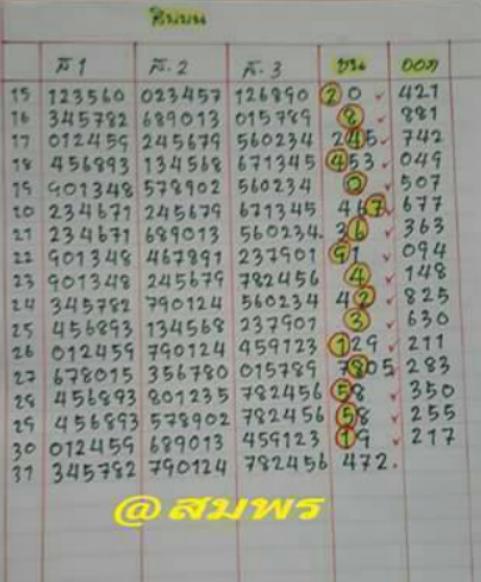 สิบบน
ส.1 ส.2 ส.3 ชน ออก
15 123560 023457 126890 20 ✓ 421
16 345782 689013 015789 8 ✓ 881
17 012459 245679 560234 245 ✓ 742
18 456893 134568 671345 453 ✓ 049
19 901348 578902 560234 0 ✓ 507
20 234671 245679 671345 467 ✓ 677
21 234671 689013 560234 36 ✓ 363
22 901348 467891 237901 91 ✓ 094
23 901348 245679 782456 4 ✓ 148
24 345782 790124 560234 42 ✓ 825
25 456893 134568 237901 3 ✓ 630
26 012459 790124 459123 129 ✓ 211
27 678015 356780 015789 7805 283
28 456893 801235 782456 58 ✓ 350
29 456893 578902 782456 58 ✓ 255
30 012459 689013 459123 19 ✓ 217
31 345782 790124 782456 472.
@สมพร